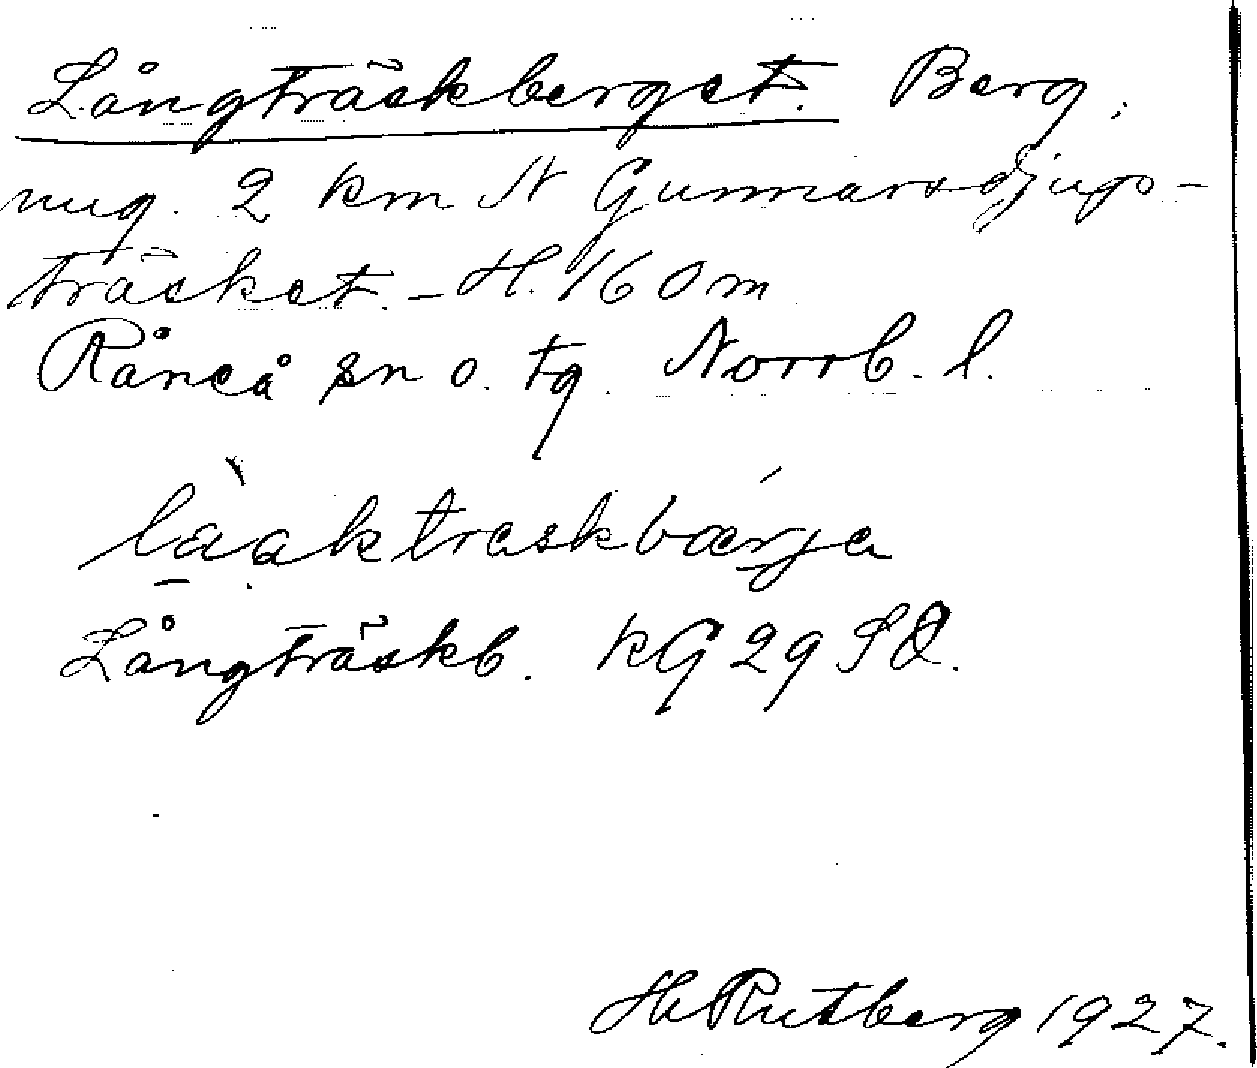 Långträskberget. Berg.
ung. 2 km N Gunnarsdjup-
träsket. - H. 160 m
Råneå sn o. tg. Norrb. l.
làaktraskbǽrja
Långträskb. KG 29 SO.
Hj Rutberg 1927.